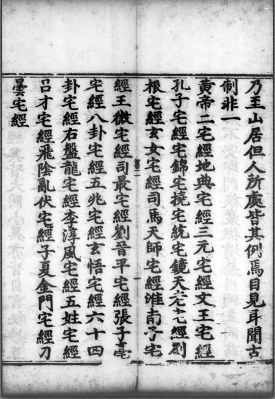 乃至山居但人所處皆其例焉目見耳聞古
制非一
黃帝二宅經地典宅經三元宅經文王宅經
孔子宅經宅錦宅撓宅統宅鏡天老宅經劉
根宅經玄女宅經司馬天師宅經淮南子宅
經王微宅經司最宅經劉晉平宅經張子毫
宅經八卦宅經五兆宅經玄悟宅經六十四
卦宅經右盤龍宅經李淳風宅經五姓宅經
呂才宅經飛陰亂伏宅經子夏金門宅經刀
曇宅經